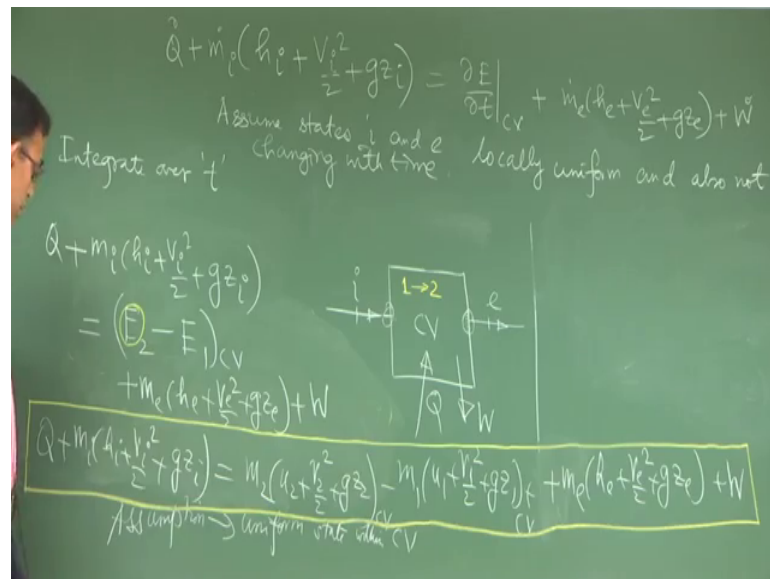 Q̇ + ṁᵢ(hᵢ + Vᵢ²/2 + gzᵢ) = ∂E/∂t|CV + ṁₑ(hₑ + Vₑ²/2 + gzₑ) + Ẇ
Assume states i and e locally uniform and also not
changing with time.
Integrate over 't'
Q + mᵢ(hᵢ + Vᵢ²/2 + gzᵢ)
= (E₂ − E₁)CV
+ mₑ(hₑ + Vₑ²/2 + gzₑ) + W
i
1→2
CV
e
Q
W
Q + mᵢ(hᵢ + Vᵢ²/2 + gzᵢ) = m₂(u₂ + V₂²/2 + gz₂)CV − m₁(u₁ + V₁²/2 + gz₁)CV + mₑ(hₑ + Vₑ²/2 + gzₑ) + W
Assumption → uniform state within CV